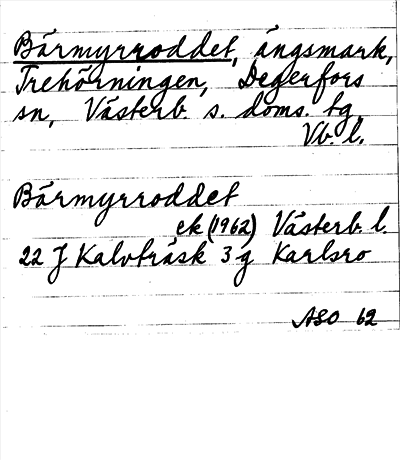 Bärmyrroddet, ängsmark,
Trehörningen, Degerfors
sn, Västerb. s. doms. tg,
Vb. l.
Bärmyrroddet
ek (1962) Västerb. l.
22 J Kalvträsk 3 g Karlsro
ASO 62